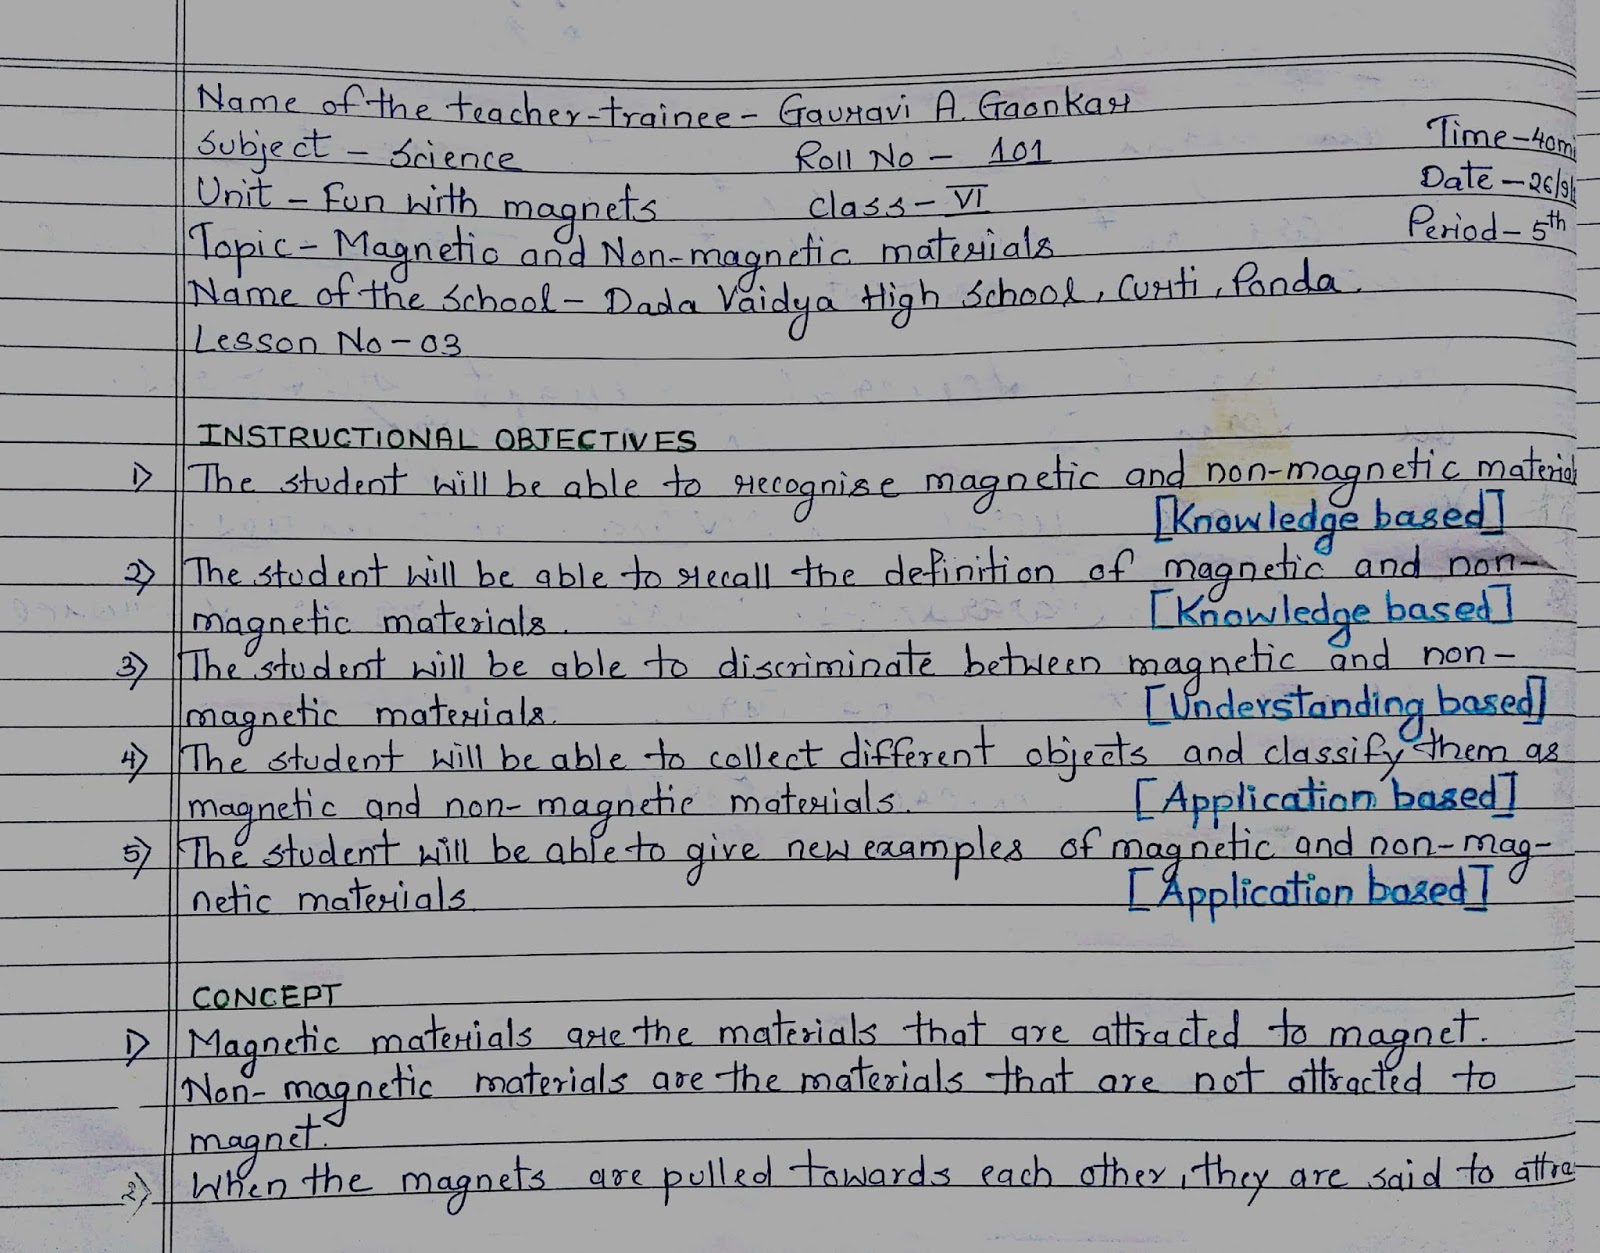 Name of the teacher-trainee - Gauravi A. Gaonkar
Time-40mi
Subject - Science Roll No - 101
Date-26/9/
Unit - Fun with magnets class - VI
Period - 5th
Topic - Magnetic and Non-magnetic materials
Name of the School - Dada Vaidya High School, Curti, Ponda.
Lesson No - 03
INSTRUCTIONAL OBJECTIVES
1) The student will be able to recognise magnetic and non-magnetic material
[Knowledge based]
2) The student will be able to recall the definition of magnetic and non-
magnetic materials. [Knowledge based]
3) The student will be able to discriminate between magnetic and non-
magnetic materials. [Understanding based]
4) The student will be able to collect different objects and classify them as
magnetic and non-magnetic materials. [Application based]
5) The student will be able to give new examples of magnetic and non-mag-
netic materials. [Application based]
CONCEPT
1) Magnetic materials are the materials that are attracted to magnet.
Non-magnetic materials are the materials that are not attracted to
magnet.
2) When the magnets are pulled towards each other, they are said to attra